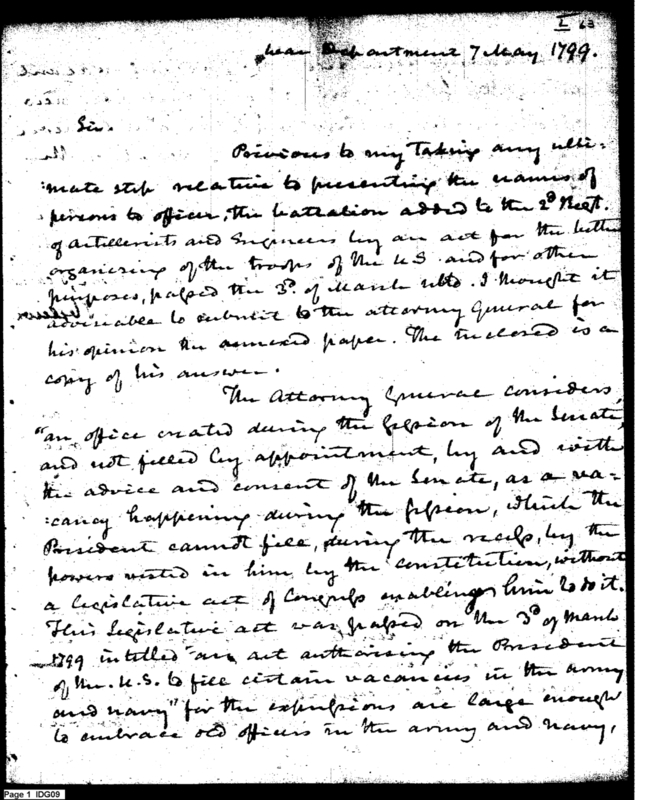 I 63
War Department 7 May 1799.
Sir.
Previous to my taking any ulti=
=mate step relative to presenting the names of
persons to officer, the battalion added to the 2d Regt.
of artillerists and Engineers by an act for the better
organizing of the troops of the U S and for other
purposes, passed the 3d. of March ulto. I thought it
adviseable to submit to the attorney General for
his opinion the annexed paper. The Enclosed is a
copy of his answer.
The Attorney General considers,
"an office created during the session of the Senate,
and not filled by appointment, by and with
the advice and consent of the Senate, as a va=
=cancy happening during the session, which the
President cannot fill, during the recess, by the
powers vested in him by the constitution, without
a legislative act of Congress enabling him to do it.
This Legislative act was passed on the 3d of March
1799 intitled "an act authorising the President
of the U.S. to fill certain vacancies in the army
and navy" for the expressions are large enough
to embrace old officers in the army and navy,
Page 1 IDG09